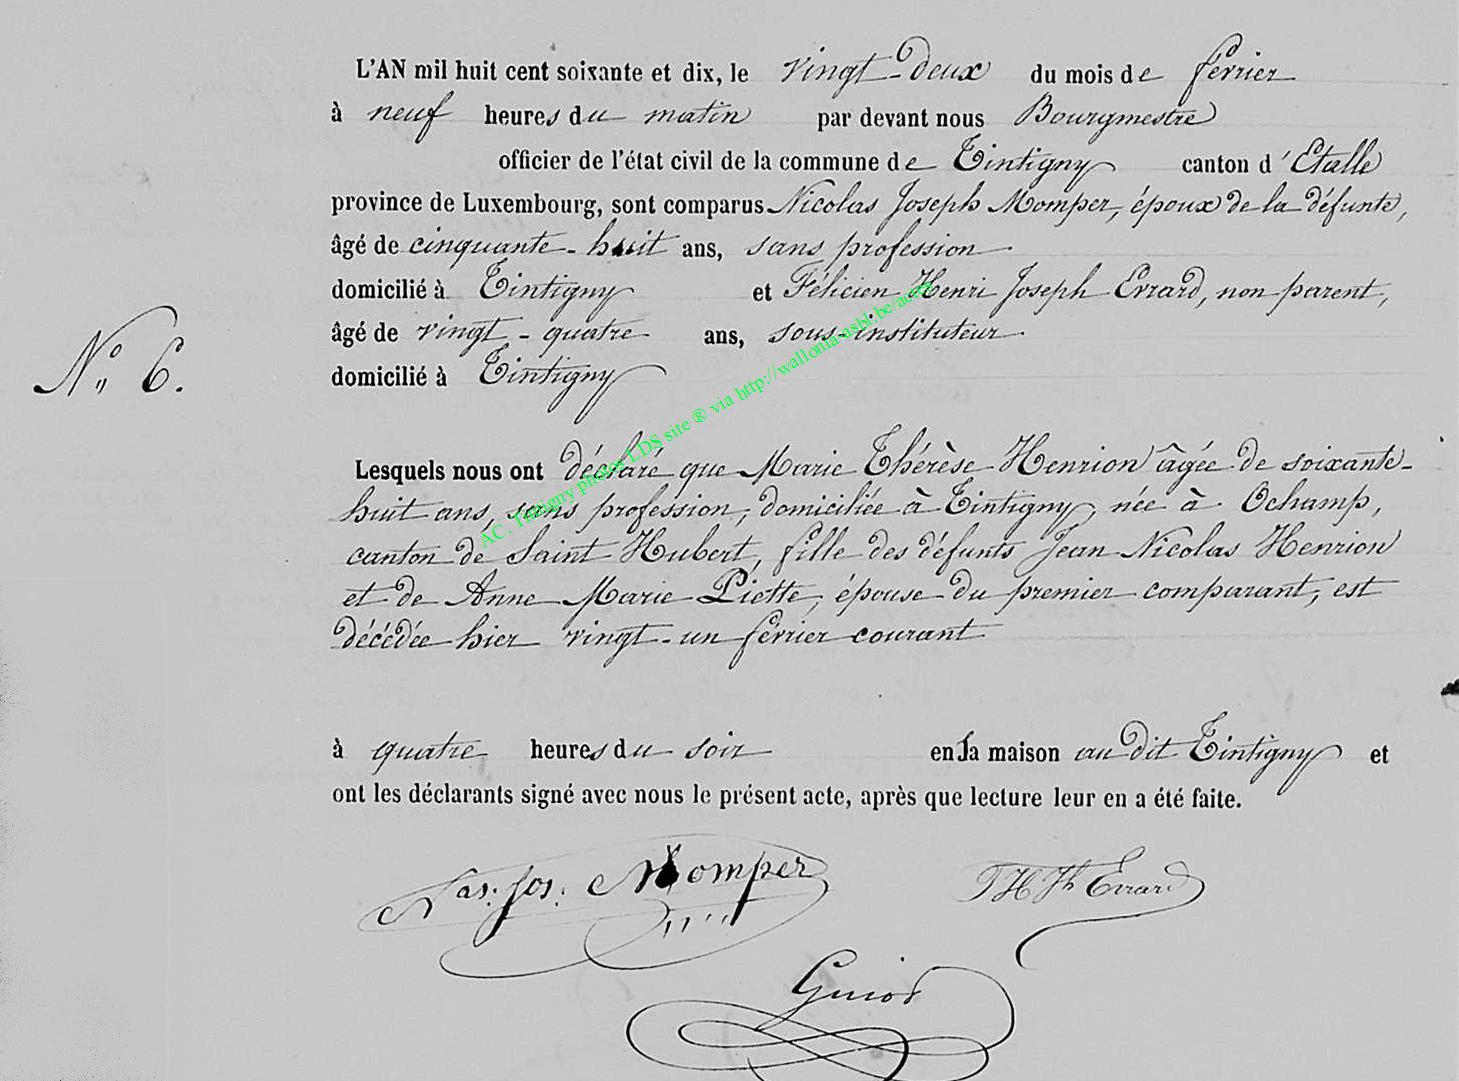 L'AN mil huit cent soixante et dix, le vingt-deux du mois de février
à neuf heures du matin par devant nous Bourgmestre
officier de l'état civil de la commune de Tintigny canton d'Etalle
province de Luxembourg, sont comparus Nicolas Joseph Momper, époux de la défunte,
âgé de cinquante-huit ans, sans profession
domicilié à Tintigny et Félicien Henri Joseph Evrard, non parent,
âgé de vingt-quatre ans, sous-instituteur
N° 6.
domicilié à Tintigny
Lesquels nous ont déclaré que Marie Thérèse Henrion âgée de soixante-
huit ans, sans profession, domiciliée à Tintigny, née à Ochamp,
canton de Saint Hubert, fille des défunts Jean Nicolas Henrion
et de Anne Marie Piette, épouse du premier comparant, est
décédée hier vingt-un février courant
à quatre heures du soir en la maison au dit Tintigny et
ont les déclarants signé avec nous le présent acte, après que lecture leur en a été faite.
Nas. Jos. Momper
Evrard
AC. Tintigny photos LDS site ® via http://wallonia-asbl.be/actes